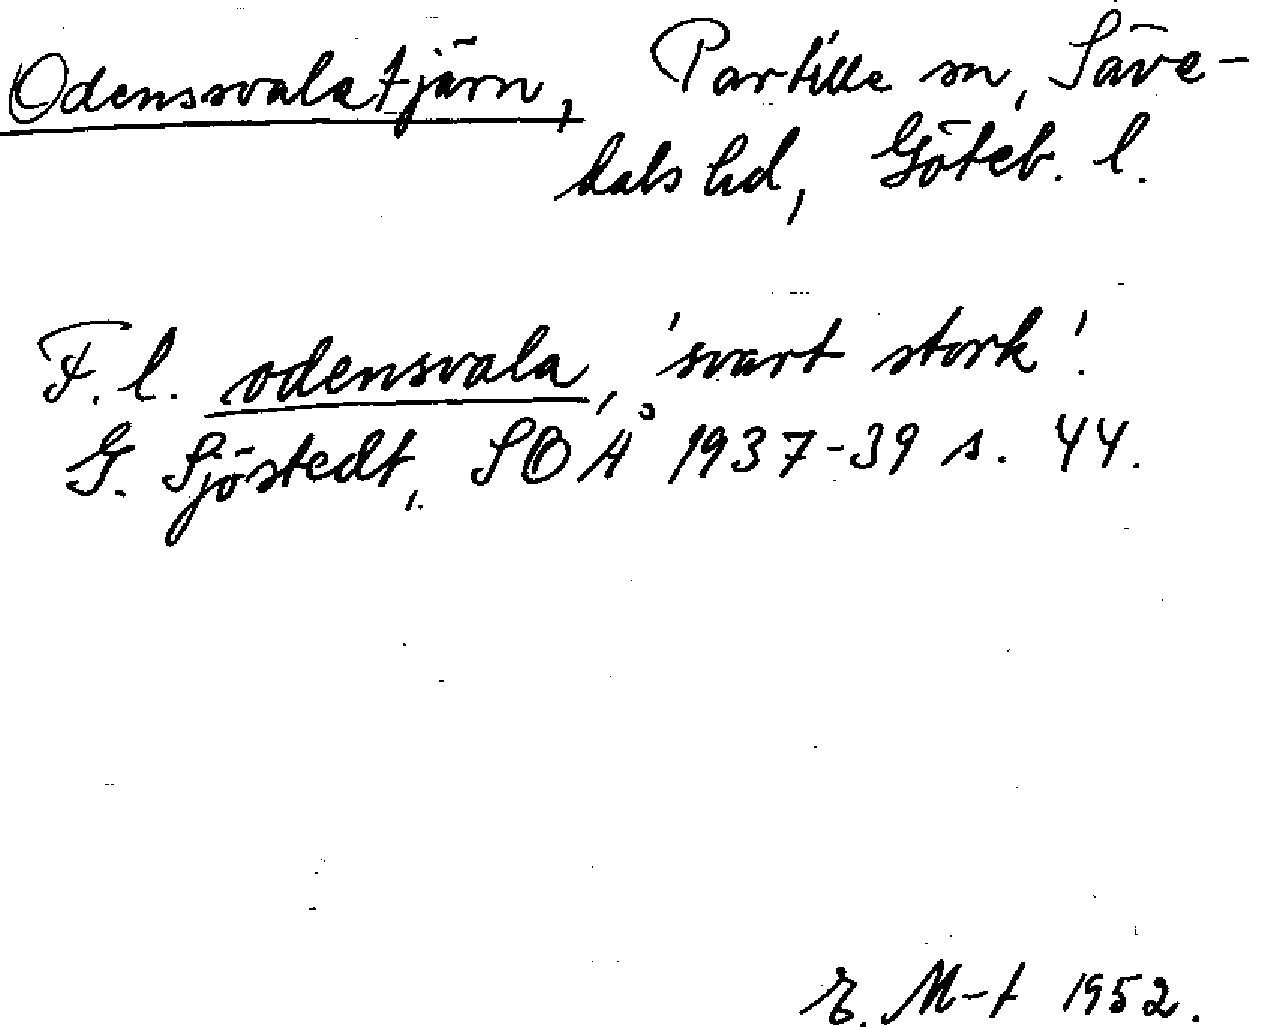 Odensvalatjärn, Partille sn, Säve-
dals hd, Göteb. l.
F. l. odensvala, 'svart stork'.
G. Sjöstedt, SOÅ 1937-39 s. 44.
E. M-t 1952.